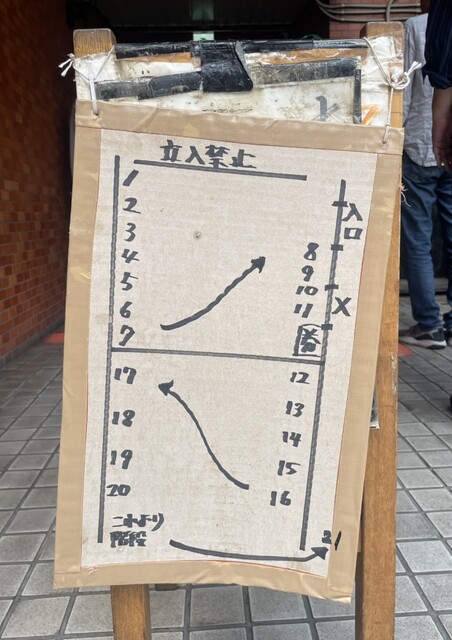 立入禁止
1
2
3
4
5
6
7
入口
8
9
10
11
X
券
17
18
19
20
12
13
14
15
16
これより
階段
21